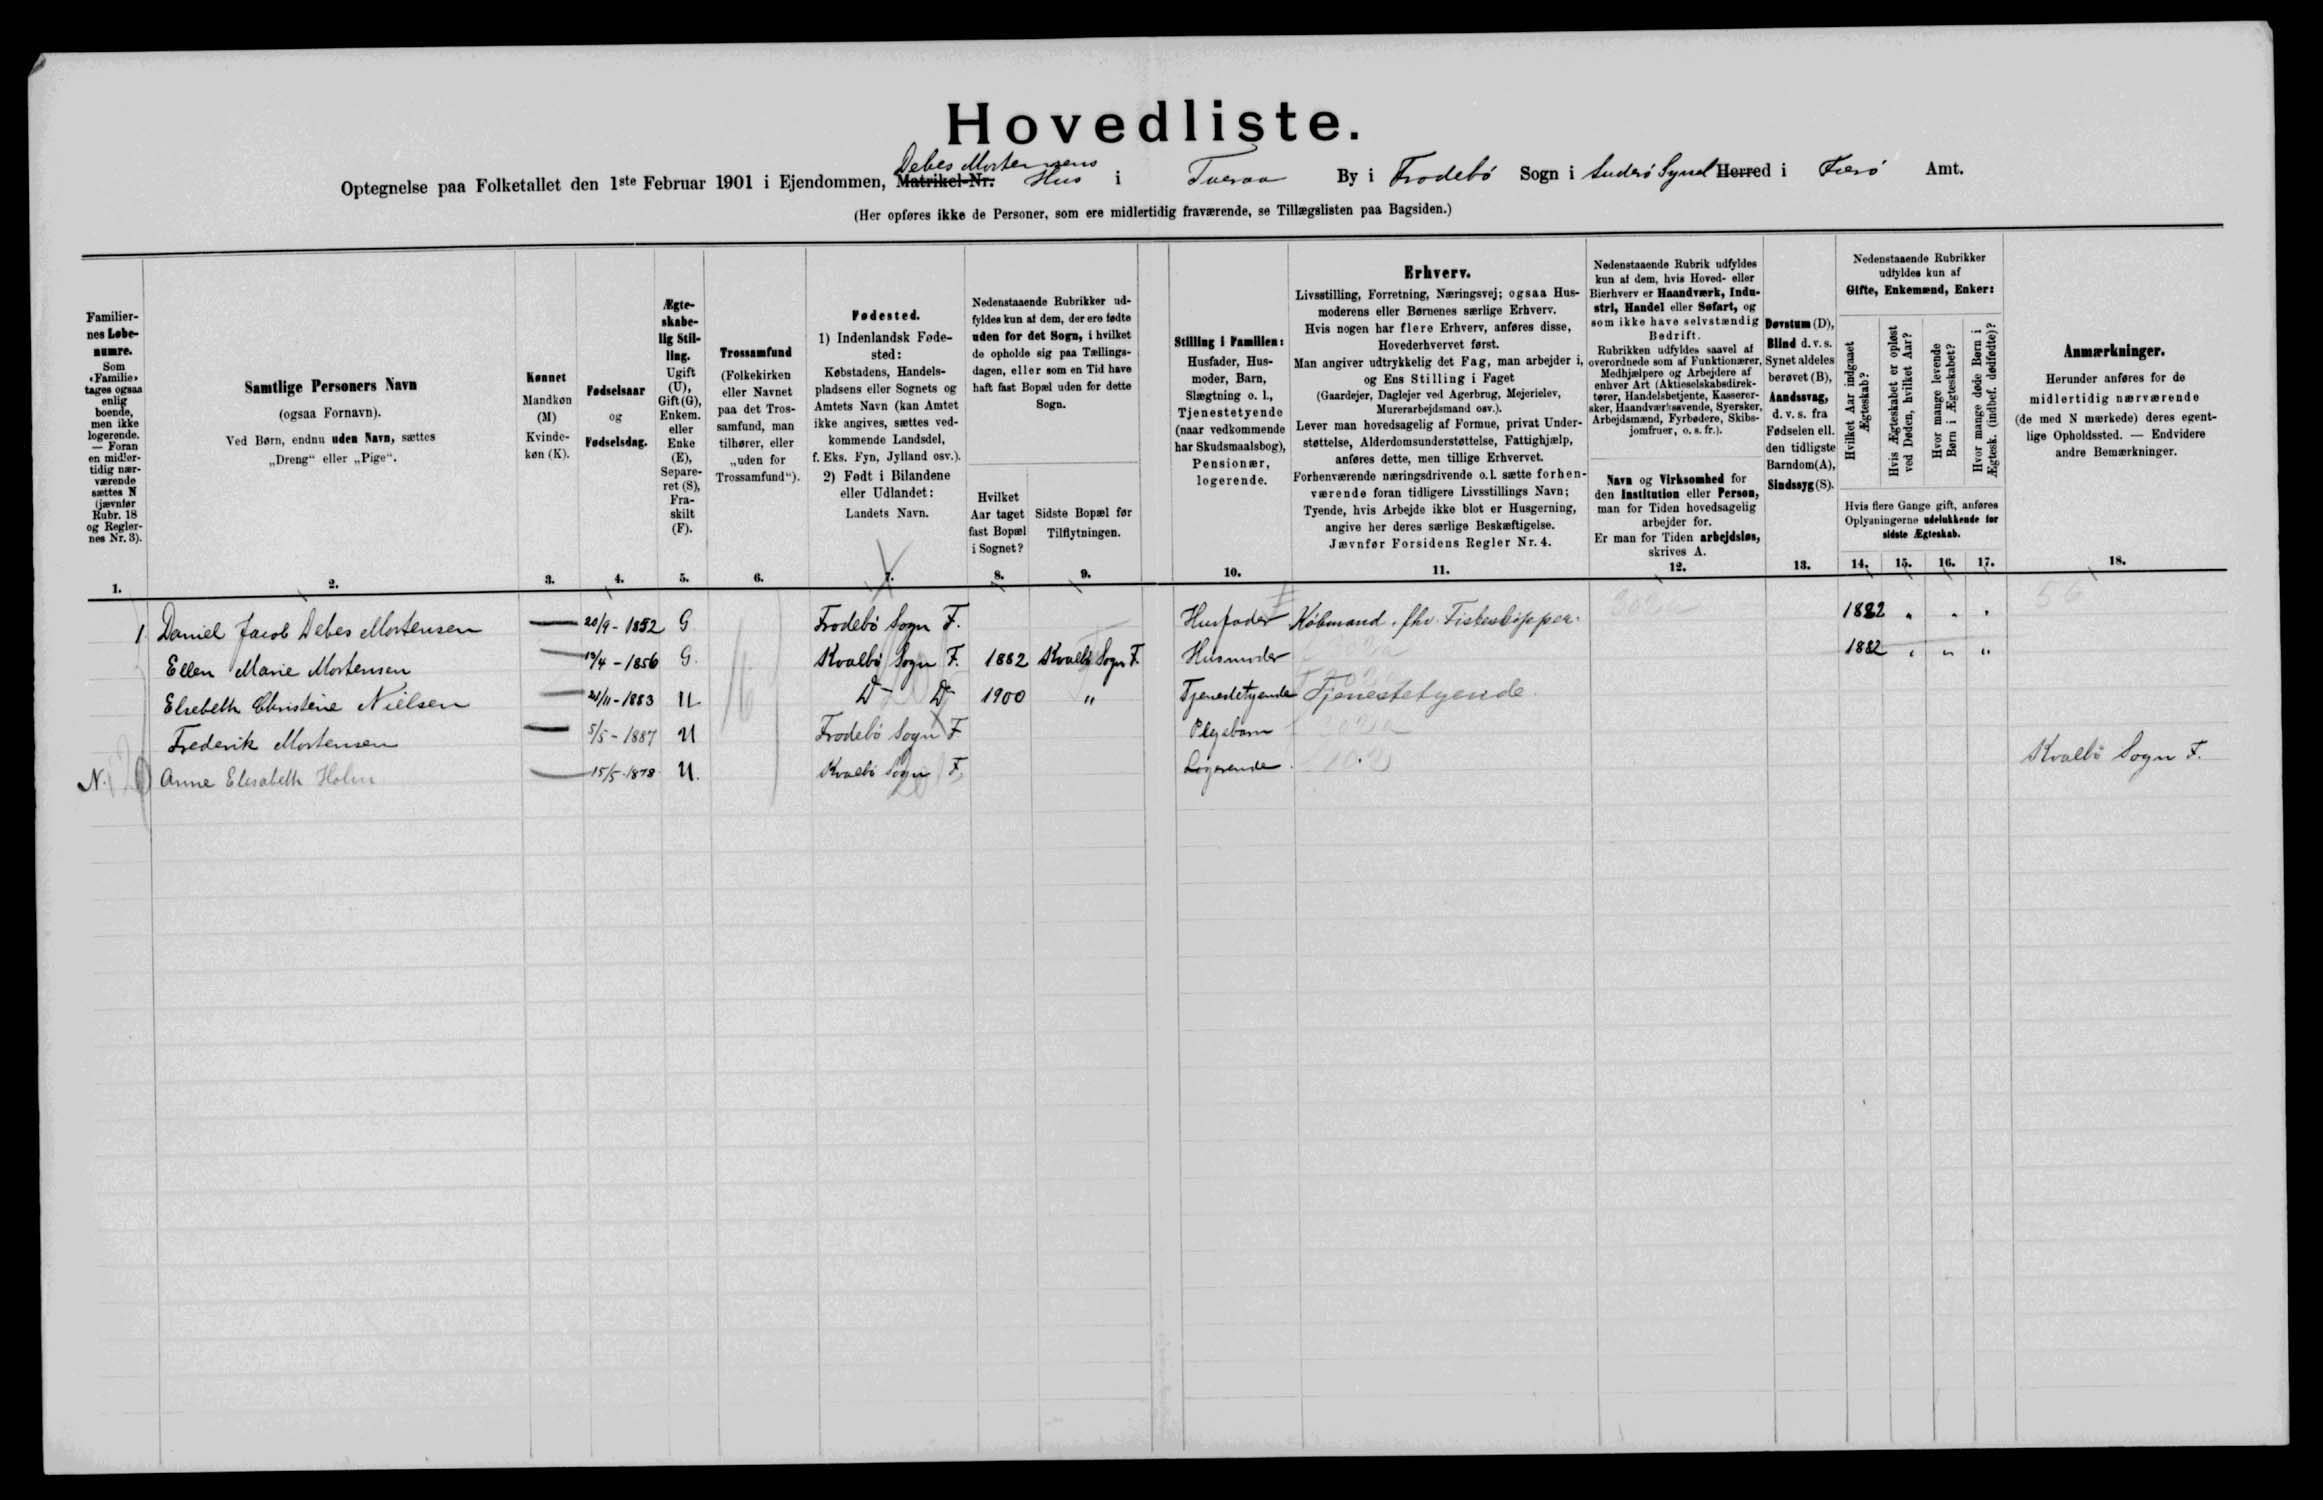 Hovedliste.
Debes Mortensens
Optegnelse paa Folketallet den 1ste Februar 1901 i Ejendommen, Matrikel-Nr. Hus i Tveraa By i Frodebö Sogn i Suderö Syssel Herred i Færö Amt.
(Her opføres ikke de Personer, som ere midlertidig fraværende, se Tillægslisten paa Bagsiden.)
Familiernes Løbenumre.
Som «Familie» tages ogsaa enlig boende, men ikke logerende. — Foran en midlertidig nærværende sættes N (jævnfør Rubr. 18 og Reglernes Nr. 3).
1.
Samtlige Personers Navn
(ogsaa Fornavn).
Ved Børn, endnu uden Navn, sættes
„Dreng“ eller „Pige“.
2.
Kønnet
Mandkøn
(M)
Kvindekøn (K).
3.
Fødselsaar
og
Fødselsdag.
4.
Ægteskabelig Stilling.
Ugift (U), Gift (G), Enkem. eller Enke (E), Separeret (S), Fraskilt (F).
5.
Trossamfund
(Folkekirken eller Navnet paa det Trossamfund, man tilhører, eller „uden for Trossamfund“).
6.
Fødested.
1) Indenlandsk Fødested:
Købstadens, Handelspladsens eller Sognets og Amtets Navn (kan Amtet ikke angives, sættes vedkommende Landsdel, f. Eks. Fyn, Jylland osv.).
2) Født i Bilandene eller Udlandet:
Landets Navn.
7.
Nedenstaaende Rubrikker udfyldes kun af dem, der ere fødte uden for det Sogn, i hvilket de opholde sig paa Tællingsdagen, eller som en Tid have haft fast Bopæl uden for dette Sogn.
Hvilket Aar taget fast Bopæl i Sognet?
8.
Sidste Bopæl før Tilflytningen.
9.
Stilling i Familien:
Husfader, Husmoder, Barn, Slægtning o. l., Tjenestetyende (naar vedkommende har Skudsmaalsbog), Pensionær, logerende.
10.
Erhverv.
Livsstilling, Forretning, Næringsvej; ogsaa Husmoderens eller Børnenes særlige Erhverv.
Hvis nogen har flere Erhverv, anføres disse, Hovederhvervet først.
Man angiver udtrykkelig det Fag, man arbejder i, og Ens Stilling i Faget
(Gaardejer, Daglejer ved Agerbrug, Mejerielev, Murerarbejdsmand osv.).
Lever man hovedsagelig af Formue, privat Understøttelse, Alderdomsunderstøttelse, Fattighjælp, anføres dette, men tillige Erhvervet.
Forhenværende næringsdrivende o. l. sætte forhenværende foran tidligere Livsstillings Navn;
Tyende, hvis Arbejde ikke blot er Husgerning, angive her deres særlige Beskæftigelse.
Jævnfør Forsidens Regler Nr. 4.
11.
Nedenstaaende Rubrik udfyldes kun af dem, hvis Hoved- eller Bierhverv er Haandværk, Industri, Handel eller Søfart, og som ikke have selvstændig Bedrift.
Rubrikken udfyldes saavel af overordnede som af Funktionærer, Medhjælpere og Arbejdere af enhver Art (Aktieselskabsdirektører, Handelsbetjente, Kasserersker, Haandværkssvende, Syersker, Arbejdsmænd, Fyrbødere, Skibsjomfruer, o. s. fr.).
Navn og Virksomhed for den Institution eller Person, man for Tiden hovedsagelig arbejder for.
Er man for Tiden arbejdsløs, skrives A.
12.
Døvstum (D), Blind d. v. s. Synet aldeles berøvet (B), Aandssvag, d. v. s. fra Fødselen ell. den tidligste Barndom (A), Sindssyg (S).
13.
Nedenstaaende Rubrikker udfyldes kun af
Gifte, Enkemænd, Enker:
Hvilket Aar indgaaet Ægteskab?
Hvis Ægteskabet er opløst ved Døden, hvilket Aar?
Hvor mange levende Børn i Ægteskabet?
Hvor mange døde Børn i Ægtesk. (indbef. dødfødte)?
Hvis flere Gange gift, anføres Oplysningerne udelukkende for sidste Ægteskab.
14. 15. 16. 17.
Anmærkninger.
Herunder anføres for de midlertidig nærværende (de med N mærkede) deres egentlige Opholdssted. — Endvidere andre Bemærkninger.
18.
1 Daniel Jacob Debes Mortensen — 20/9 - 1852 G Frodebö Sogn F. Husfader Købmand. fhv. Fiskeskipper. 1882 " " "
Ellen Marie Mortensen — 12/4 - 1856 G. Kvalbö Sogn F. 1882 Kvalbö Sogn F. Husmoder 1882 " " "
Elsebeth Christine Nielsen — 21/11 - 1883 U Do Do 1900 " Tjenestetyende Tjenestetyende
Frederik Mortensen — 5/5 - 1887 U Frodebö Sogn F Plejebarn
N. Anne Elisabeth Holm — 15/5 - 1878 U. Kvalbö Sogn F. Logerende. Kvalbö Sogn F.